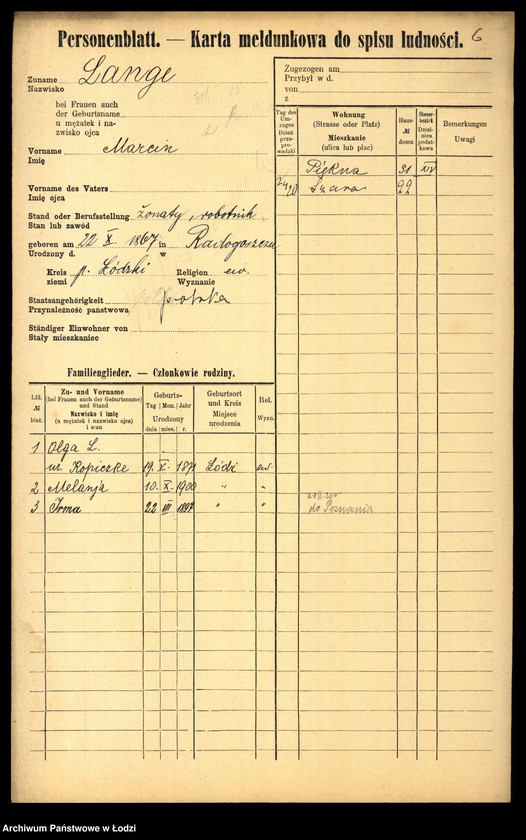 Personenblatt. — Karta meldunkowa do spisu ludności. 6
Zuname Lange
Nazwisko
bei Frauen auch
der Geburtsname
u mężatek i na-
zwisko ojca
Vorname Marcin
Imię
Vorname des Vaters
Imię ojca
Stand oder Berufsstellung żonaty, robotnik
Stan lub zawód
geboren am 22 X. 1867 in Radogoszczu
Urodzony d. w
Kreis p. Łódzki Religion ew.
ziemi Wyznanie
Staatsangehörigkeit polska
Przynależność państwowa
Ständiger Einwohner von
Stały mieszkaniec
Zugezogen am
Przybył w d.
von
z
Tag des Um-zuges Dzień prze-prowadzki
Wohnung (Strasse oder Platz) Mieszkanie (ulica lub plac)
Haus-№ domu
Steuer-bezirk Dziel-nica podat-kowa
Bemerkungen Uwagi
Piękna 31 XIV
Szara 22
Familienglieder. — Członkowie rodziny.
Lfd. № bież.
Zu- und Vorname (bei Frauen auch der Geburtsname) und Stand Nazwisko i imię (u mężatek i nazwisko ojca) i stan
Geburts- Tag Mon. Jahr Urodzony dnia mies. r.
Geburtsort und Kreis Miejsce urodzenia
Rel. Wyzn.
1 Olga L.
ur. Kopiczke 19. X. 1871 Łódź ew.
2 Melanja 10. X. 1900 " "
3 Irma 22 III 1897 " "
do Poznania
Archiwum Państwowe w Łodzi